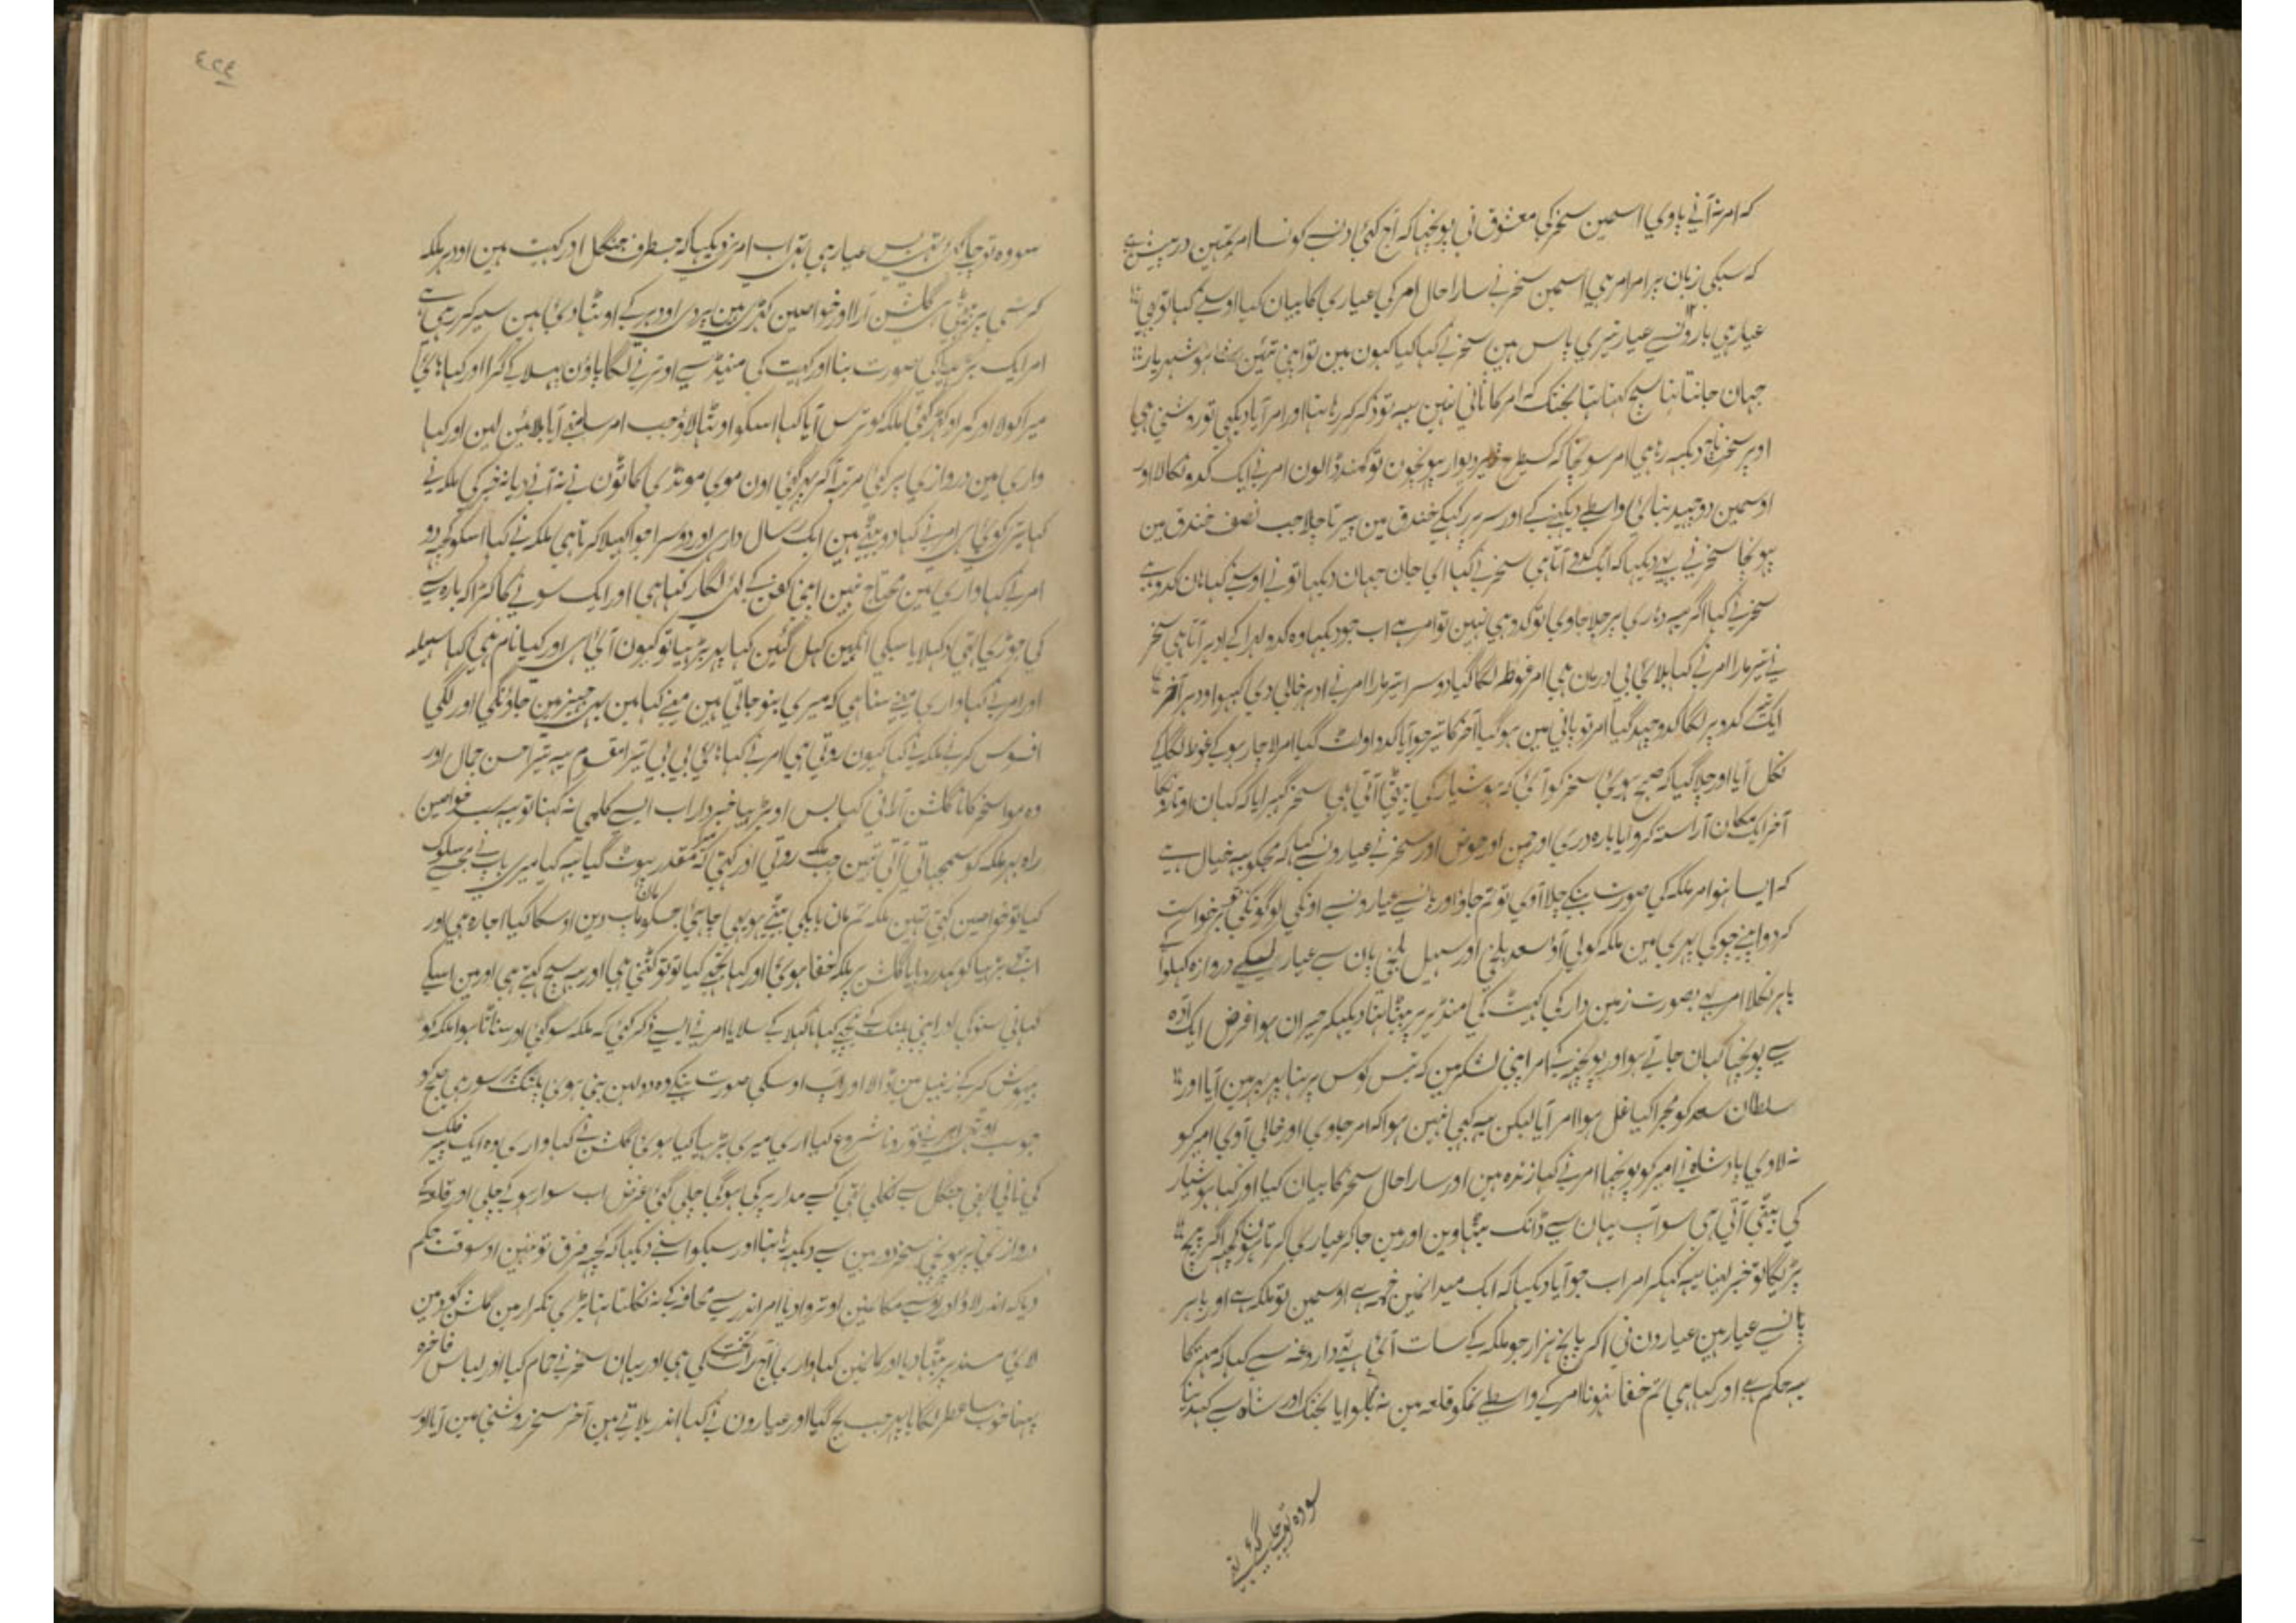 کہ امر نہ آنے پاوی اسمین سخر کی معشوق نی پوچھا کہ آج کئی دنسے کونسا امر تمہین درپیش ہے
کہ سبکی زبان پر امر امر ہی اسمین سخر نے سارا حال امر کی عیاری کا بیان کیا اوسنے کہا تو بھی
عیار ہی بارونسے عیار تیری پاس ہین سخر نے کہا کیا کیون مین تو اپنی تئین ہوشیار
جہان جانتا تہا سچ کہتا تہا بختک کہ امر کا ثانی نہین یہہ تو ذکر کر رہا تہا اور امر آیا دیکہی تو روشنی ہی
اوپر سخر دیکہہ رہا ہی امر سوچا کہ کسیطرح دیوار پہونچون تو کمند ڈالون امر نے ایک کدو نکالا اور
اوسمین دو چہید بنائی واسطے دیکہنے کے اور سر پر رکہکے خندق مین پیرتا چلا جب نصف خندق مین
پہونچا سخر نے دیکہا کہ ایک کدو آتا ہی سخر نے کہا ای جان جہان دیکہا تو نے اوسنے کہا ہان کدو ہے
سخر نے کہا اگر یہہ دہاری پر چلا جاوی تو کدو ہی نہین تو امر ہے اب جو دیکہا وہ کدو لہرا کے اوپر آتا ہی سخر
نے تیر مارا امر نے کہا بلائی بی درمان ہی امر غوطہ لگا گیا دوسرا تیر مارا امر نے اوپر خالی دی کبہو اودہر آخر
ایک تیر کدو پر لگا کدو چہید گیا امر تو پانی مین ہو گیا آخر کا تیر جو آیا کدو اولٹ گیا امر لاچار ہو کے غوطہ لگا کے
نکل آیا اور چلا گیا کہ صبح ہوئی سخر کو آئی کہ ہوشیار کی بیٹی آتی ہی سخر گہبرایا کہ کہان اوتارونگا
آخر ایک مکان آراستہ کروایا بارہ دری اور چمن اور حوض اور سخر نے عیارونسے کہا کہ مجکو یہہ خیال ہے
کہ ایسا نہو امر ملکہ کی صورت بنکے چلا آوی تو تم جاؤ اور پانسے عیارونسے اونکی لوگونکی برخواست
کر دو اپنے چوکی پہری مین ملکہ کو لی آؤ سعد بلخی اور سہیل بلخی پان سے عیار لیکے دروازہ کہلوا کے
باہر نکلا امر نے بصورت زمین دار کی کہیت کی منڈیر پر بیٹہا تہا دیکہکر حیران ہوا غرض ایک آدہ
سے پوچہا کہان جاتے ہو اور پوچہہ کے امر اپنی لشکر مین کہ تیس کوس پر تہا پہر مین آیا اور
سلطان سعد کو مجرا کیا غل ہوا امر آیا لیکن یہہ کبہی نہین ہوا کہ امر جاوی اور خالی آوی امیر کو
نہ لاوی بادشاہ نے امیر کو پوچہا امر نے کہا زندہ ہین اور سارا حال سخر کا بیان کیا اور کہا ہوشیار
کی بیٹی آتی ہی سو آپ یہان سے ڈانک بیٹہاوین اور مین جا کر عیاری کرتا ہون کچہہ اگر پیچ
پڑیگا تو خبر لینا یہہ کہکر امر اب جو آیا دیکہا کہ ایک میدانمین خیمہ ہے اوسمین تو ملکہ ہے اور باہر
پانسے عیار ہین عیارون نی اکر پانچ ہزار جو ملکہ کے سات آئی تہے داروغہ سے کہا کہ مہتر کا
یہہ حکم ہے اور کہا ہی تم خفا نہونا امر کے واسطے تمکو قلعہ مین نہ بلوایا بختک اور شاہ سے کہدینا
سو وہ تو چلے گئے تہے
سو وہ تو چلے گئے تہے بس عیار ہی تہے اب امر نے دیکہا کہ جسطرف جنگل اور کہیت ہین اودہر ملکہ
کرسی پر بیٹہی ہی گلشن آرا اور خواصین کہڑی ہین پردی اودہر کے اوٹہا دئی ہین سیر کر رہی ہے
امر ایک بڑہیا کی صورت بنا اور کہیت کی منڈیر سے اوترنے لگا پاؤن پہسلا کے گرا اور کہا ہائی
میرا کولا اور کمر اوکہڑ گئی ملکہ کو ترس آیا کہا اسکو اوٹہا لاؤ جب امر سامنے آیا بلائین لین اور کہا
واری مین دروازی پر کئی مرتبہ آکر پہر گئی اون موی مونڈی کاٹون نے نہ آنے دیا نہ خبر کی ملکہ نے
کہا تیرا کوئی ہی امر نے کہا دو بیٹے ہین ایک رسالداری اور دوسرا جوا کہیلا کرتا ہی ملکہ نے کہا اسکو کچہہ دو
امر نے کہا واری مین محتاج نہین اپنی کفن کے لئی لگا رکہا ہی اور ایک سونے کا کڑا کہ بارہ سے
کی جوڑی تہی دکہلایا سبکی انکہین کہل گئین کہا پہر بڑہیا تو کیون آئی ہی اور کیا نام ہی کہا سہیلہ
اور امر نے کہا واری مینے سنا ہی کہ میری بنو جاتی ہین مینے کہا مین بہی جہیز مین جاؤنگی اور لگی
افسوس کرنے ملکہ نے کہا کیون روتی ہی امر نے کہا ہائی بی بی تیرا مقسوم یہہ تیرا حسن جمال اور
وہ موا سخر کانا گلشن آرا نی کہا بس او بڑہیا خبردار اب ایسے کلمی نہ کہنا تو یہہ سب خواصین
راہ بہر ملکہ کو سمجہاتی آتی تہین جب ملکہ روتی اور کہتی کہ مقدر پہوٹ گیا یہہ کیا میری باپ نے مجہسے سلوک
کیا تو خواصین کہتی تہین ملکہ تم مان باپکی بیٹی ہو یہی چاہئی جسکو مان باپ دین اوسکا کیا اجارہ ہی اور
اب جو بڑہیا کو گلشن پر ملکہ خفا ہوئی اور کہا تجہے کیا تو تو کٹنی ہی اور یہہ سچ کہتی ہی اور مین اسکے
کہانی سنونگی اور اپنی پلنگ کے نیچے کہانا کہلا کے سلایا امر نے ایسے ذکر کئی کہ ملکہ سو گئی اور سناٹا ہوا ملکہ کو
بیہوش کر کے زنبیل مین ڈالا اور آپ اوسکی صورت بنکے وہ دولہن بنی ہوئی پلنگ پر سو رہی صبح کو
جو سب اوٹہے امر نے تو رونا شروع کیا اری میری بڑہیا کیا ہوئی گلشن نے کہا واری وہ ایک پیر فلک
کی نانی تہی جنگل سے نکلی تہی کسے مدار پر کی ہوگی چلی گئی غرض اب سوار ہو کے چلی اور قلعہ کے
دروازی پر پہونچی سخر دوربین سے دیکہہ رہا تہا اور سبکو اسنے دیکہا کہ کچہہ فرق تو نہین اوسوقت حکم
دیا کہ اندر لاؤ اور اوسے مکانمین اوتروا دیا امر اندر سے محافہ کے نہ نکلتا تہا بڑی تکرار مین گلشن گود مین
لائی مسند پر بیٹہا دیا اور کانمین کہا واری آج رات تخت کی ہی اور یہان سخر نے حمام کیا اور لباس فاخرہ
پہنا خوب سا عطر لگایا پہر جب سج گیا اور عیارون نے کہا اندر بلاتے ہین آخر سخر روشنی مین آیا اور